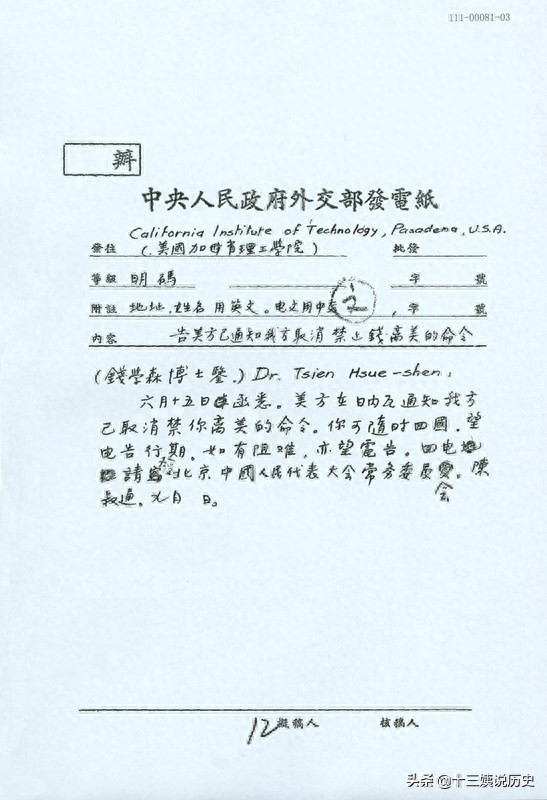 111-00081-03
辦
中央人民政府外交部發電紙
California Institute of Technology, Pasadena, U.S.A.
發往 (美國加州省理工學院) 批發
等級 明碼 字 號
附註 地址,姓名用英文。电文用中文 2 字 號
內容 告美方已通知我方取消禁止錢离美的命令
(錢學森博士鑒) Dr. Tsien Hsue-shen:
六月十五日函悉。美方在日內瓦通知我方
已取消禁你离美的命令。你可随时回國。望
电告行期。如有阻难,亦望電告。回电
請發北京中國人民代表大会常务委員会陳
叔通。九月 日。
12 擬稿人 核稿人
头条 @十三姨说历史